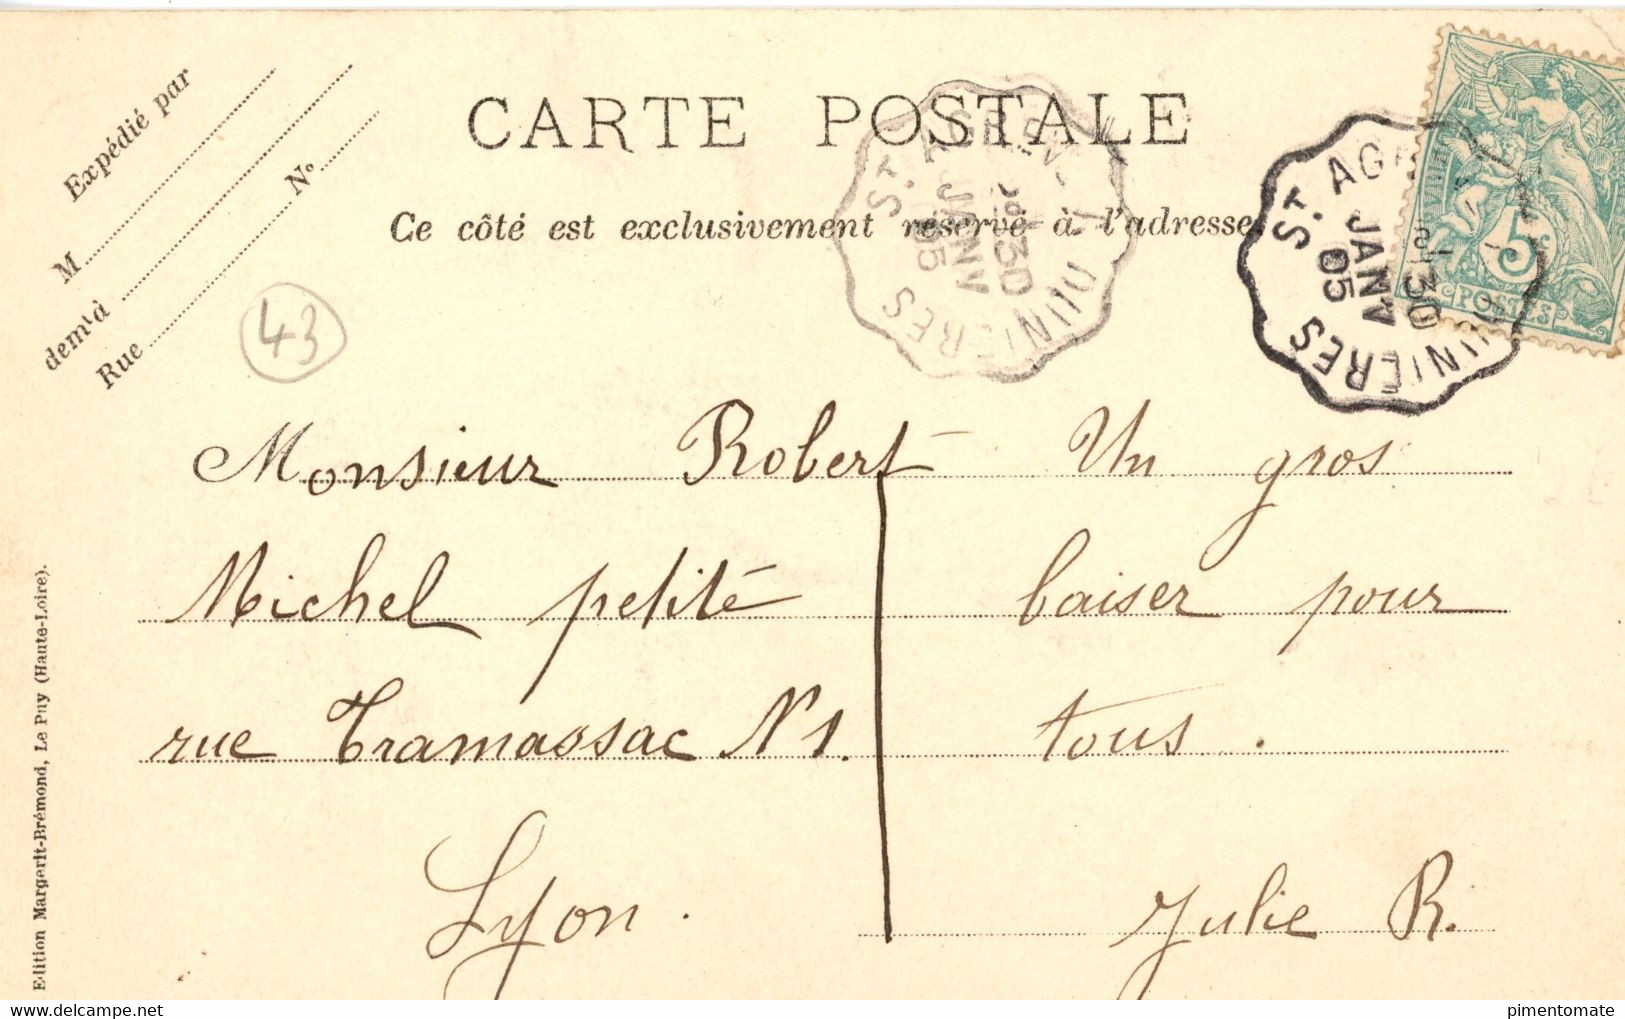 Expédié par
M
dem<sup>t</sup> à
Rue N°
CARTE POSTALE
Ce côté est exclusivement réservé à l'adresse
43
St. AGRÈVE - DUNIÈRES
30
JANV
05
St. AG DUNIÈRES
30
JANV
05
5c
POSTES
Monsieur Robert
Michel petité
rue Tramassac N 1.
Lyon.
Un gros
baiser pour
tous.
Julie R.
Edition Margerit-Brémond, Le Puy (Haute-Loire).
pimentomate